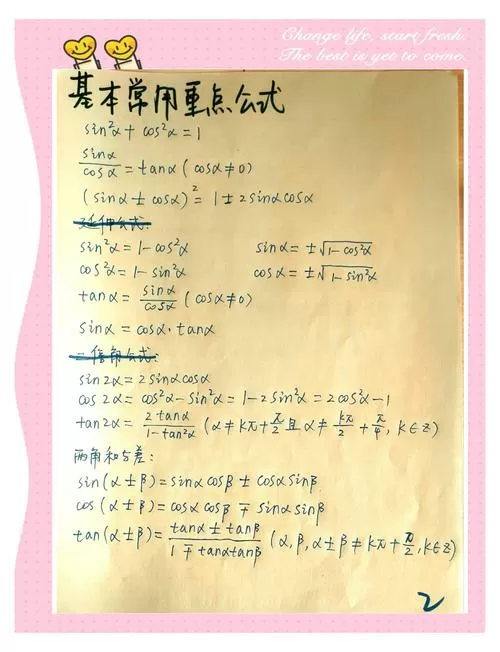 Change life, start fresh.
The best is yet to come.
基本常用重点公式
sin²α + cos²α = 1
sinα/cosα = tanα (cosα≠0)
(sinα ± cosα)² = 1 ± 2sinαcosα
延伸公式:
sin²α = 1-cos²α sinα = ±√(1-cos²α)
cos²α = 1-sin²α cosα = ±√(1-sin²α)
tanα = sinα/cosα (cosα≠0)
sinα = cosα·tanα
二倍角公式:
sin2α = 2sinαcosα
cos2α = cos²α-sin²α = 1-2sin²α = 2cos²α-1
tan2α = 2tanα/(1-tan²α) (α≠kπ+π/2且α≠kπ/2+π/4, k∈z)
两角和与差:
sin(α±β) = sinαcosβ ± cosαsinβ
cos(α±β) = cosαcosβ ∓ sinαsinβ
tan(α±β) = (tanα±tanβ)/(1∓tanαtanβ) (α,β,α±β≠kπ+π/2, k∈z)
2